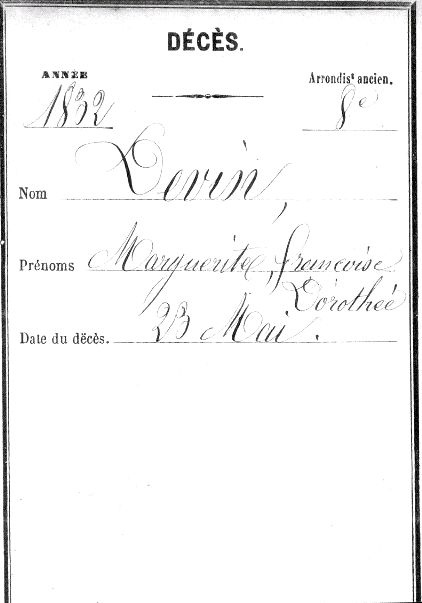 DÉCÈS.
ANNÉE Arrondist ancien.
1832 8e
Nom Devin,
Prénoms Marguerite, françoise
Dorothée
Date du décès. 23 Mai.